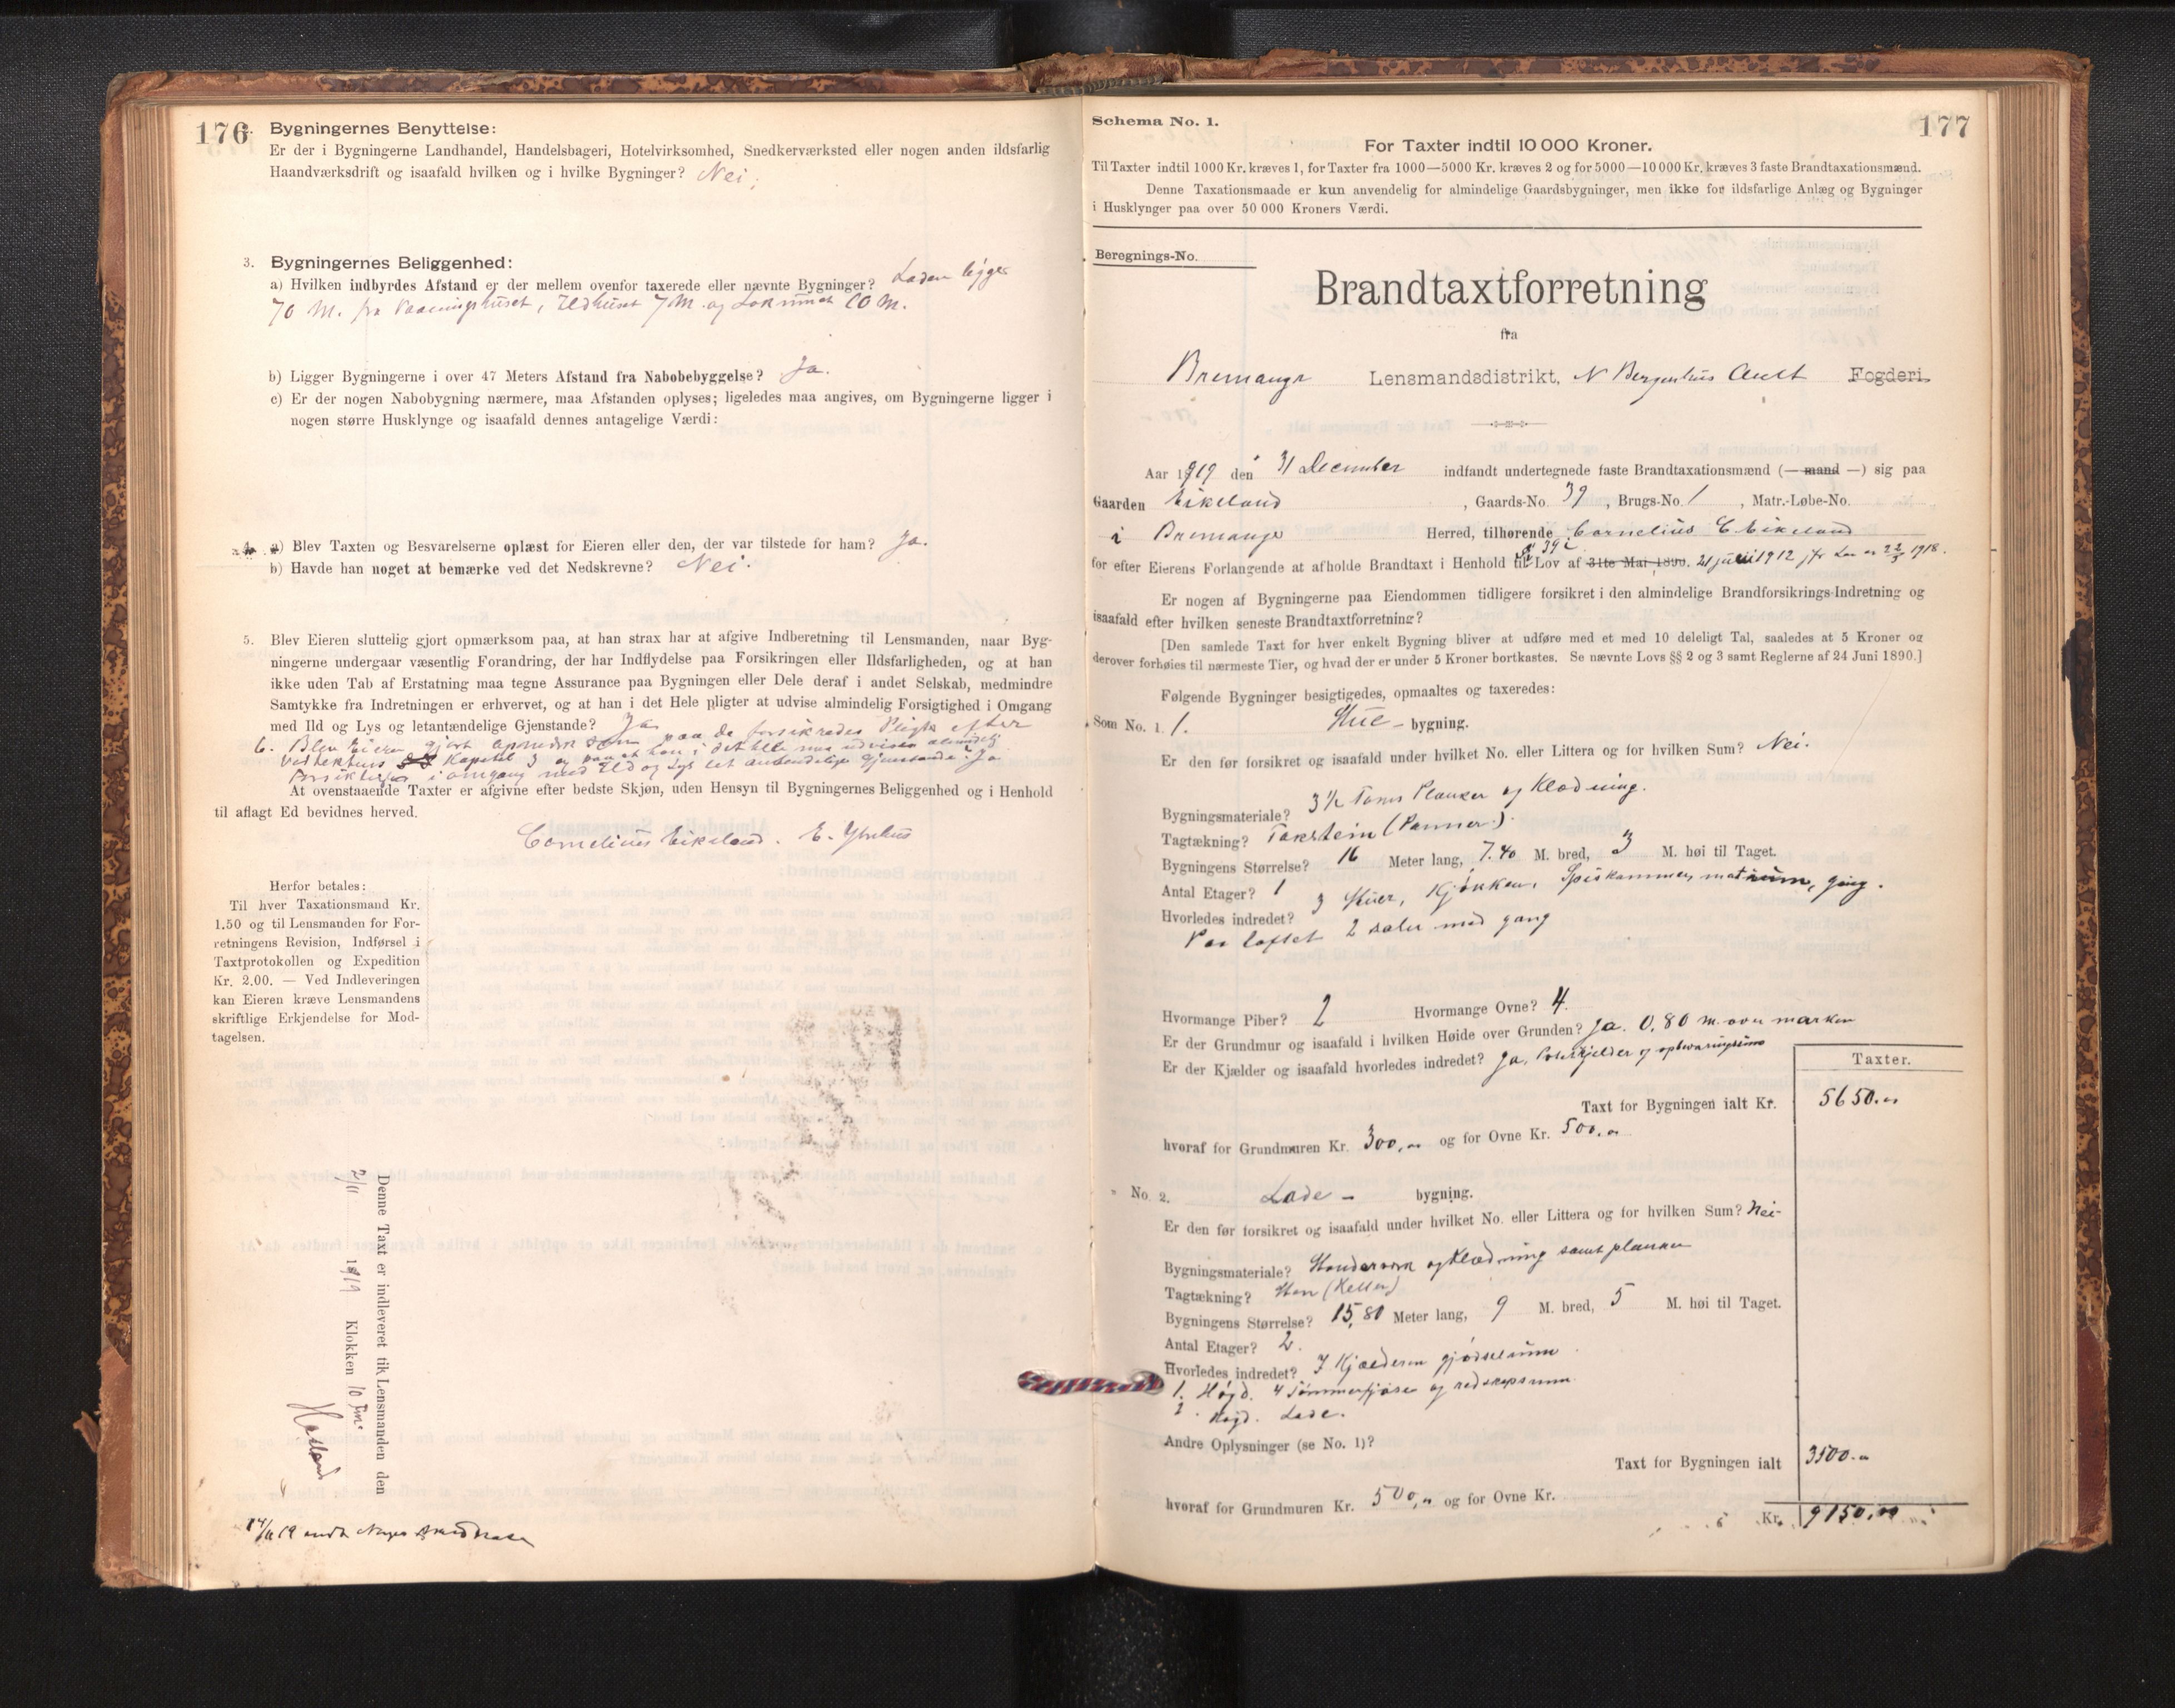 176
Bygningernes Benyttelse:
Er der i Bygningerne Landhandel, Handelsbageri, Hotelvirksomhed, Snedkerværksted eller nogen anden ildsfarlig
Haandværksdrift og isaafald hvilken og i hvilke Bygninger? Nei.
3. Bygningernes Beliggenhed:
a) Hvilken indbyrdes Afstand er der mellem ovenfor taxerede eller nævnte Bygninger? Laden ligger
70 M. fra Vaaningshuset, Ildhuset 7 M. og
b) Ligger Bygningerne i over 47 Meters Afstand fra Nabobebyggelse? Ja.
c) Er der nogen Nabobygning nærmere, maa Afstanden oplyses; ligeledes maa angives, om Bygningerne ligger i
nogen større Husklynge og isaafald dennes antagelige Værdi:
4. a) Blev Taxten og Besvarelserne oplæst for Eieren eller den, der var tilstede for ham? Ja.
b) Havde han noget at bemærke ved det Nedskrevne? Nei.
5. Blev Eieren sluttelig gjort opmærksom paa, at han strax har at afgive Indberetning til Lensmanden, naar Byg-
ningerne undergaar væsentlig Forandring, der har Indflydelse paa Forsikringen eller Ildsfarligheden, og at han
ikke uden Tab af Erstatning maa tegne Assurance paa Bygningen eller Dele deraf i andet Selskab, medmindre
Samtykke fra Indretningen er erhvervet, og at han i det Hele pligter at udvise almindelig Forsigtighed i Omgang
med Ild og Lys og letantændelige Gjenstande? Ja
6. Blev Eieren gjort opmerksom paa de forsikredes Pligter efter
Vedtektens Kapitel 3 og paa at han i det hele maa udvise almindelig
Forsiktighet i omgang med Ild og Lys let antændelige Gjenstande? Ja
At ovenstaaende Taxter er afgivne efter bedste Skjøn, uden Hensyn til Bygningernes Beliggenhed og i Henhold
til aflagt Ed bevidnes herved.
Cornelius Eikeland. E. Ytrehus
Herfor betales:
Til hver Taxationsmand Kr.
1.50 og til Lensmanden for For-
retningens Revision, Indførsel i
Taxtprotokollen og Expedition
Kr. 2.00. — Ved Indleveringen
kan Eieren kræve Lensmandens
skriftlige Erkjendelse for Mod-
tagelsen.
Denne Taxt er indleveret til Lensmanden den
2/11 1919 Klokken 10 fm.
177
Schema No. 1.
For Taxter indtil 10 000 Kroner.
Til Taxter indtil 1000 Kr. kræves 1, for Taxter fra 1000—5000 Kr. kræves 2 og for 5000—10 000 Kr. kræves 3 faste Brandtaxationsmænd.
Denne Taxationsmaade er kun anvendelig for almindelige Gaardsbygninger, men ikke for ildsfarlige Anlæg og Bygninger
i Husklynger paa over 50 000 Kroners Værdi.
Beregnings-No.
Brandtaxtforretning
fra
Bremanger Lensmandsdistrikt, N Bergenhus Amt Fogderi.
Aar 1919 den 31 December indfandt undertegnede faste Brandtaxationsmænd (— mand —) sig paa
Gaarden Eikeland, Gaards-No. 39, Brugs-No. 1, Matr.-Løbe-No.
i Bremanger Herred, tilhørende Cornelius C. Eikeland
for efter Eierens Forlangende at afholde Brandtaxt i Henhold til § 39 i Lov af 31te Mai 1890. 21 juni 1912 jfr Lov av 22/3 1918.
Er nogen af Bygningerne paa Eiendommen tidligere forsikret i den almindelige Brandforsikrings-Indretning og
isaafald efter hvilken seneste Brandtaxtforretning?
[Den samlede Taxt for hver enkelt Bygning bliver at udføre med et med 10 deleligt Tal, saaledes at 5 Kroner og
derover forhøies til nærmeste Tier, og hvad der er under 5 Kroner bortkastes. Se nævnte Lovs §§ 2 og 3 samt Reglerne af 24 Juni 1890.]
Følgende Bygninger besigtigedes, opmaaltes og taxeredes:
Som No. 1. 1. Stue - bygning.
Er den før forsikret og isaafald under hvilket No. eller Littera og for hvilken Sum? Nei.
Bygningsmateriale? 3 ½ Toms Planker og Klædning.
Tagtækning? Takstein (Panner).
Bygningens Størrelse? 16 Meter lang, 7.40 M. bred, 3 M. høi til Taget.
Antal Etager? 1
Hvorledes indredet? 3 Stuer, Kjøkken, Spiskammer, matrum, gang.
Paa loftet 2 saler med gang
Hvormange Piber? 2 Hvormange Ovne? 4.
Er der Grundmur og isaafald i hvilken Høide over Grunden? Ja. 0,80 m. over marken
Er der Kjælder og isaafald hvorledes indredet? Ja, Potetkjelder og opbevaringsrum
Taxter.
Taxt for Bygningen ialt Kr. 5650.00
hvoraf for Grundmuren Kr. 300,00 og for Ovne Kr. 500,00
No. 2. Lade - bygning.
Er den før forsikret og isaafald under hvilket No. eller Littera og for hvilken Sum? Nei-
Bygningsmateriale? Stenderverk og Klædning samt planker
Tagtækning? Sten (Heller)
Bygningens Størrelse? 15,80 Meter lang, 9 M. bred, 5 M. høi til Taget.
Antal Etager? 2.
Hvorledes indredet? I Kjælderen gjødselrum
1. Høgd. 4 Tømmerfjøse og redskapsrum
2. Høgd. Lade.
Andre Oplysninger (se No. 1)?
Taxt for Bygningen ialt 3500.00
hvoraf for Grundmuren Kr. 500,00 og for Ovne Kr.
Kr. 9150,00